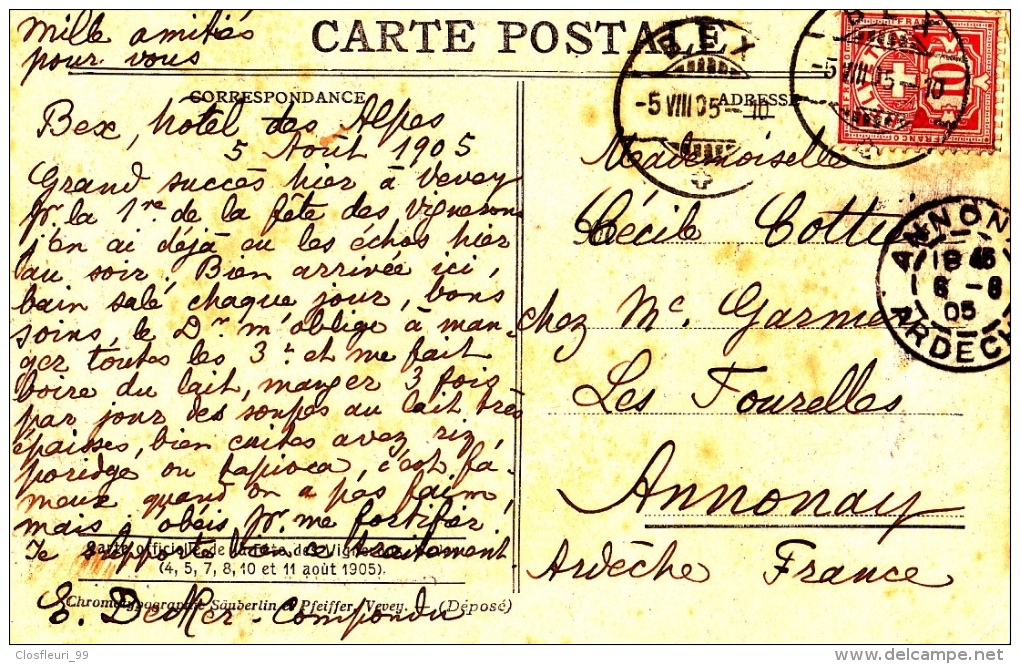 Mille amitiés
pour vous
CARTE POSTALE
BEX
-5 VIII 05 -10
BEX
-5 VIII 05 -10
FRANCO
10
CORRESPONDANCE
ADRESSE
Bex, hôtel des Alpes
5 Août 1905
Grand succès hier à Vevey
pr la 1re de la fête des Vignerons
j'en ai déjà eu les échos hier
au soir. Bien arrivée ici,
bain salé chaque jour, bons
soins, le Dr m'oblige à man-
ger toutes les 3 h et me fait
boire du lait, manger 3 fois
par jour des soupes au lait très
épaisses, bien cuites avez riz,
poridge ou tapioca, c'est fa-
meux quand on a pas faim,
mais j'obéis pr. me fortifier.
Je supporte bien ce traitement
Carte officielle de la Fête des Vignerons
(4, 5, 7, 8, 10 et 11 août 1905).
Chromotypographie Säuberlin & Pfeiffer, Vevey. — (Déposé)
E. Decker-Compondu
Mademoiselle
Cécile Cottu
chez Me. Garnier
Les Tourelles
Annonay
Ardèche France
ANNONAY
18 45
6 -8
05
ARDECHE
Closfleuri_99
www.delcampe.net